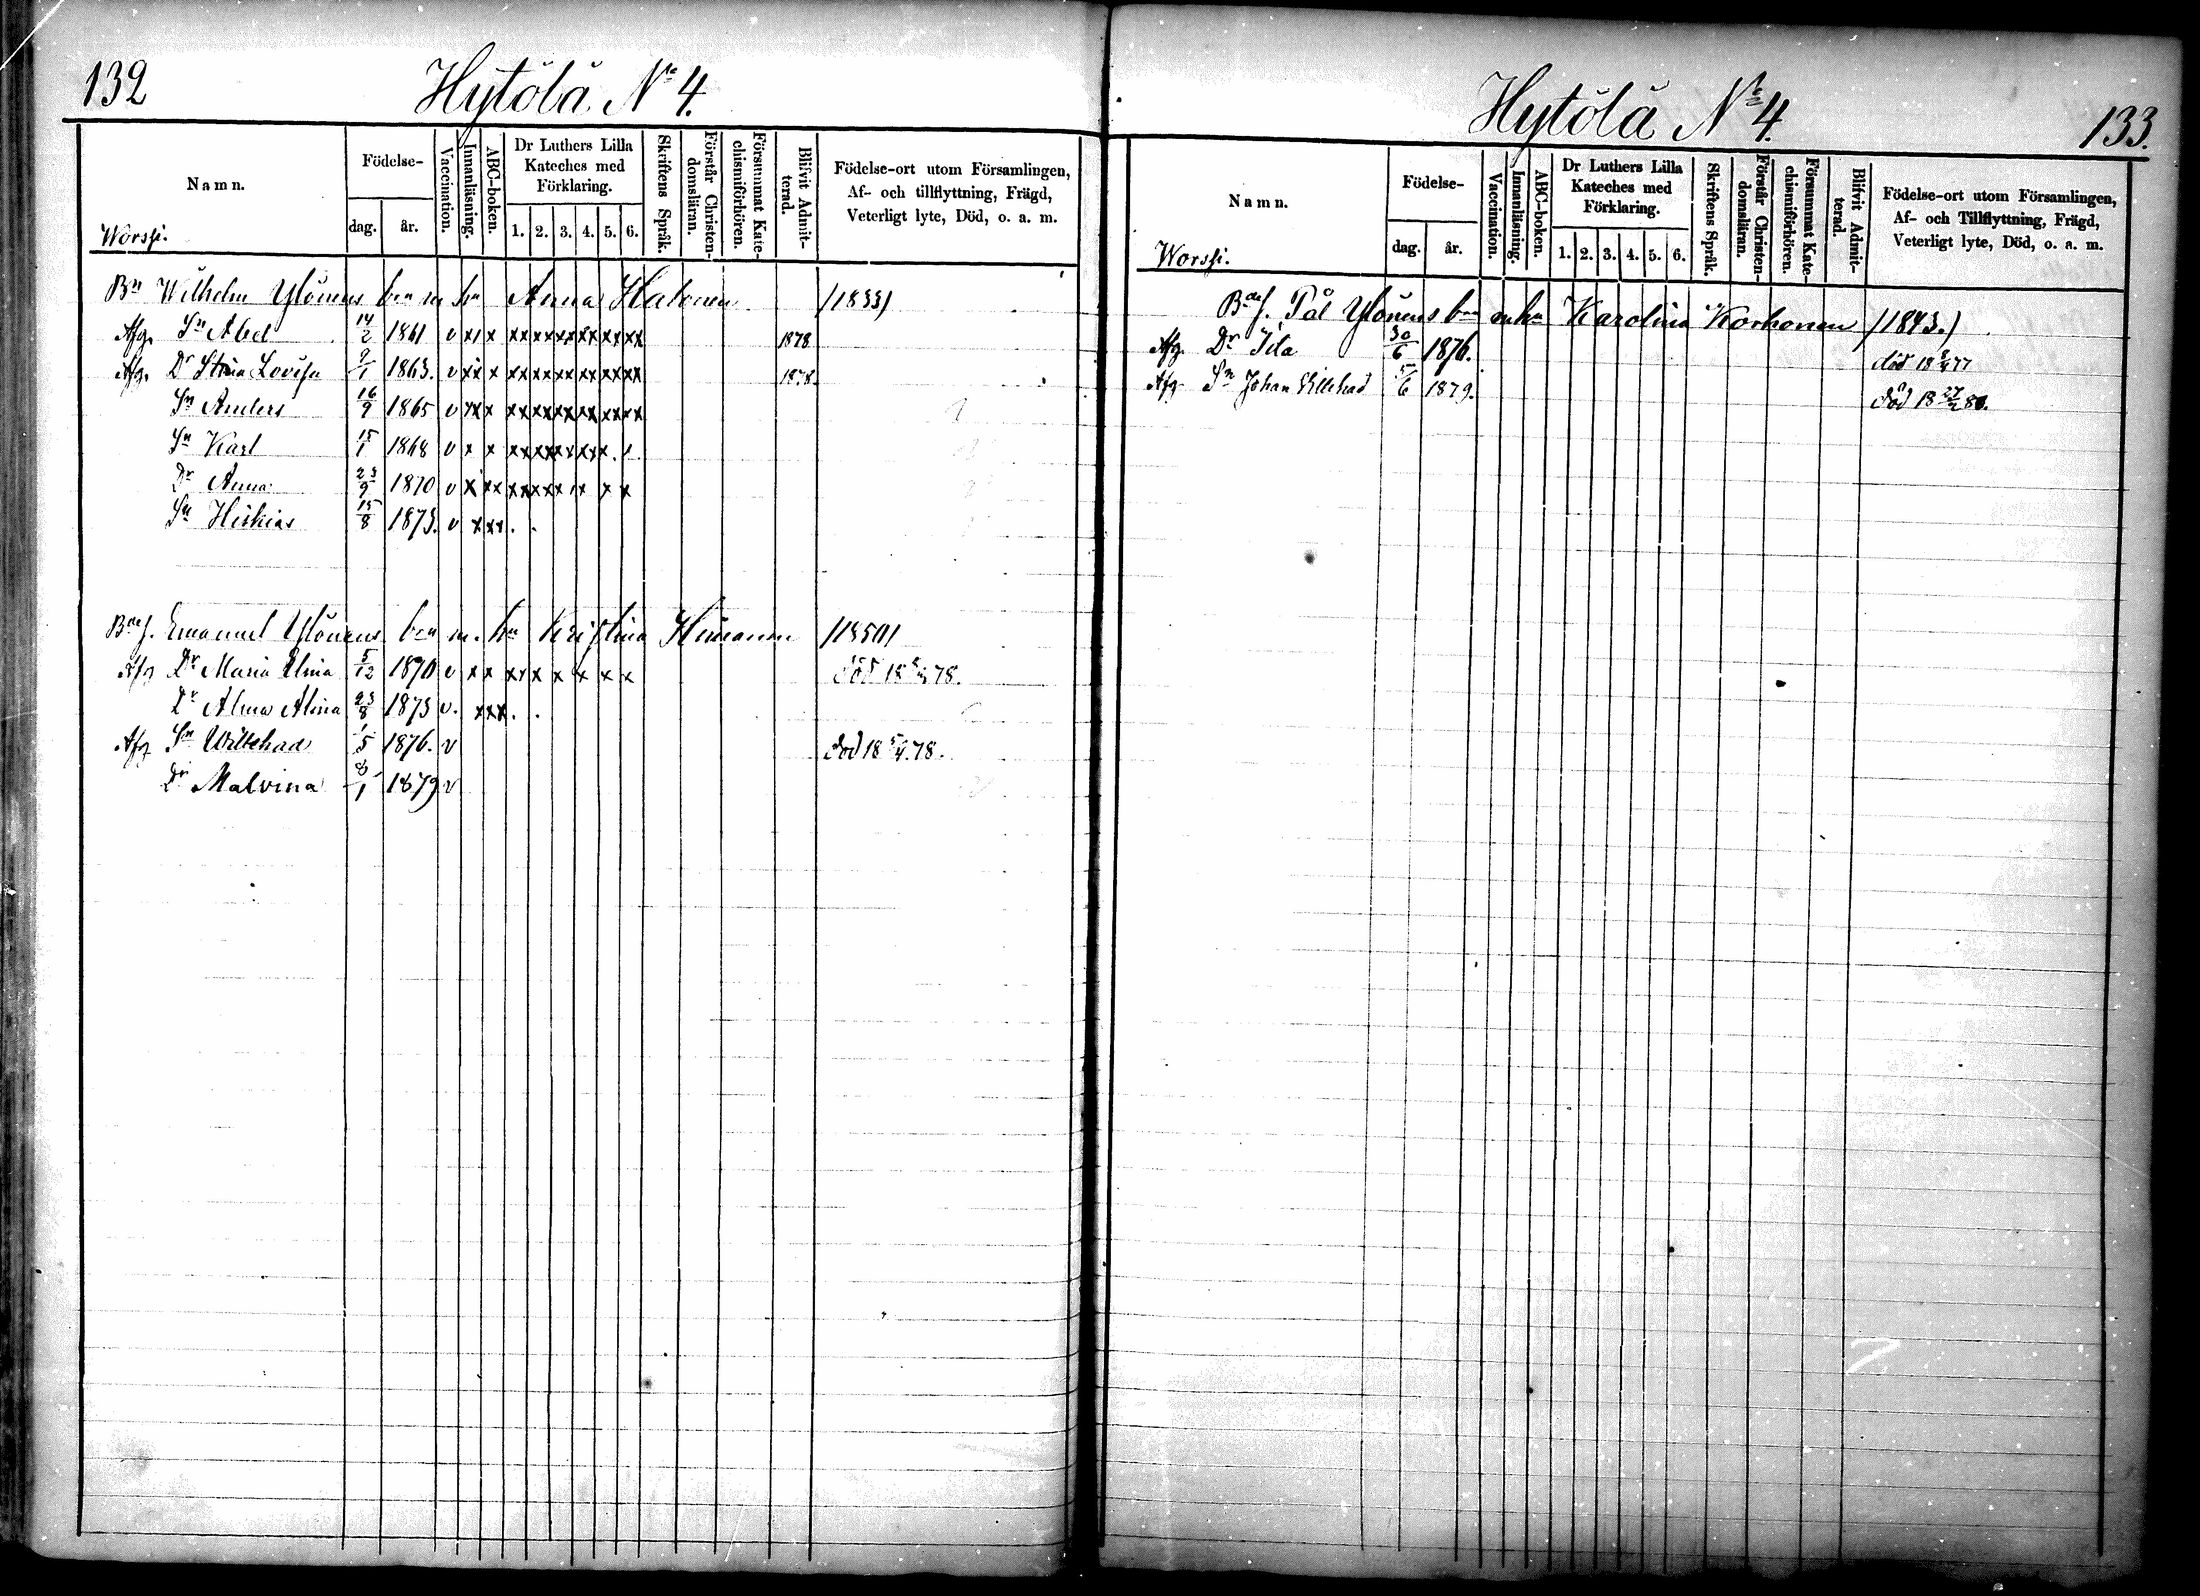 132
Hytölä No 4.
Namn.
Födelse-
dag. år.
Vaccination.
Innanläsning.
ABC-boken.
Dr Luthers Lilla Kateches med Förklaring.
1. 2. 3. 4. 5. 6.
Skriftens Språk.
Förstår Christen-domsläran.
Försummat Kate-chismiförhören.
Blifvit Admit-terad.
Födelse-ort utom Församlingen,
Af- och tillflyttning, Frägd,
Veterligt lyte, Död, o. a. m.
Worssi.
Bn Wilhelm Ylönens bn m hu Anna Halonen /1833/
Afg. Sn Abel 14/2 1861 v x x x xxxxxxxxxxxx 1878
Afg. Dr Stina Lovisa 9/1 1863. v x x x xxxxxxxxxxxx 1878.
Sn Anders 16/9 1865 v x x x xxxxxxxxxxxx
Sn Karl 15/1 1868 v x x xxxxxxxxx
Dr Anna 23/9 1870 v x x x xxxxx x x x
Sn Hiskias 15/8 1873. v x x x . .
Bns. Emanuel Ylönens bn m. hu Kristina Himanen /1850/
Afg Dr Maria Elina 5/12 1870 v x x x x x x x x x död 18 /78.
Dr Alma Alina 23/8 1873 v. xxx . .
Afg Sn Willehad 1/5 1876. v död 18 5/4 78.
Dr Malvina 8/1 1879 v
Hytölä No 4.
133.
Namn.
Födelse-
dag. år.
Vaccination.
Innanläsning.
ABC-boken.
Dr Luthers Lilla Kateches med Förklaring.
1. 2. 3. 4. 5. 6.
Skriftens Språk.
Förstår Christen-domsläran.
Försummat Kate-chismiförhören.
Blifvit Admit-terad.
Födelse-ort utom Församlingen,
Af- och Tillflyttning, Frägd,
Veterligt lyte, Död, o. a. m.
Worssi.
Bns. Pål Ylönens bn m hu Karolina Korhonen /1843./
Afg. Dr Ida 30/6 1876. död 18 /77
Afg. Sn Johan Willehad 5/6 1879. död 18 27/2 80.